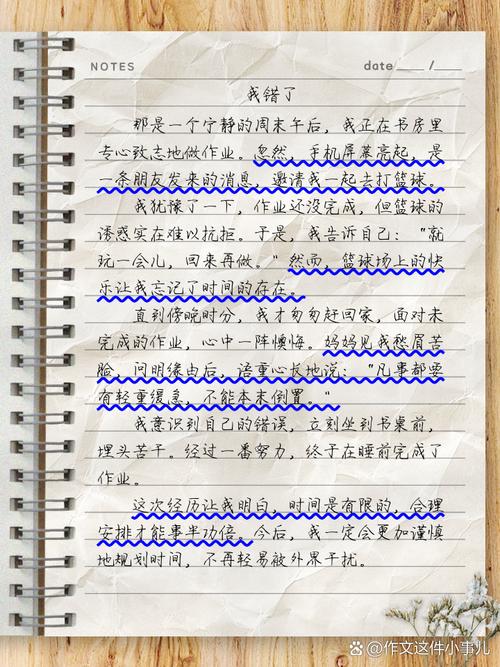 NOTES date /
我错了
那是一个宁静的周末午后，我正在书房里
专心致志地做作业。忽然，手机屏幕亮起，是
一条朋友发来的消息，邀请我一起去打篮球。
我犹豫了一下，作业还没完成，但篮球的
诱惑实在难以抗拒。于是，我告诉自己：“就
玩一会儿，回来再做。”然而，篮球场上的快
乐让我忘记了时间的存在。
直到傍晚时分，我才匆匆赶回家，面对未
完成的作业，心中一阵懊悔。妈妈见我愁眉苦
脸，问明缘由后，语重心长地说：“凡事都要
有轻重缓急，不能本末倒置。”
我意识到自己的错误，立刻坐到书桌前，
埋头苦干。经过一番努力，终于在睡前完成了
作业。
这次经历让我明白，时间是有限的，合理
安排才能事半功倍。今后，我一定会更加谨慎
地规划时间，不再轻易被外界干扰。
@作文这件小事儿